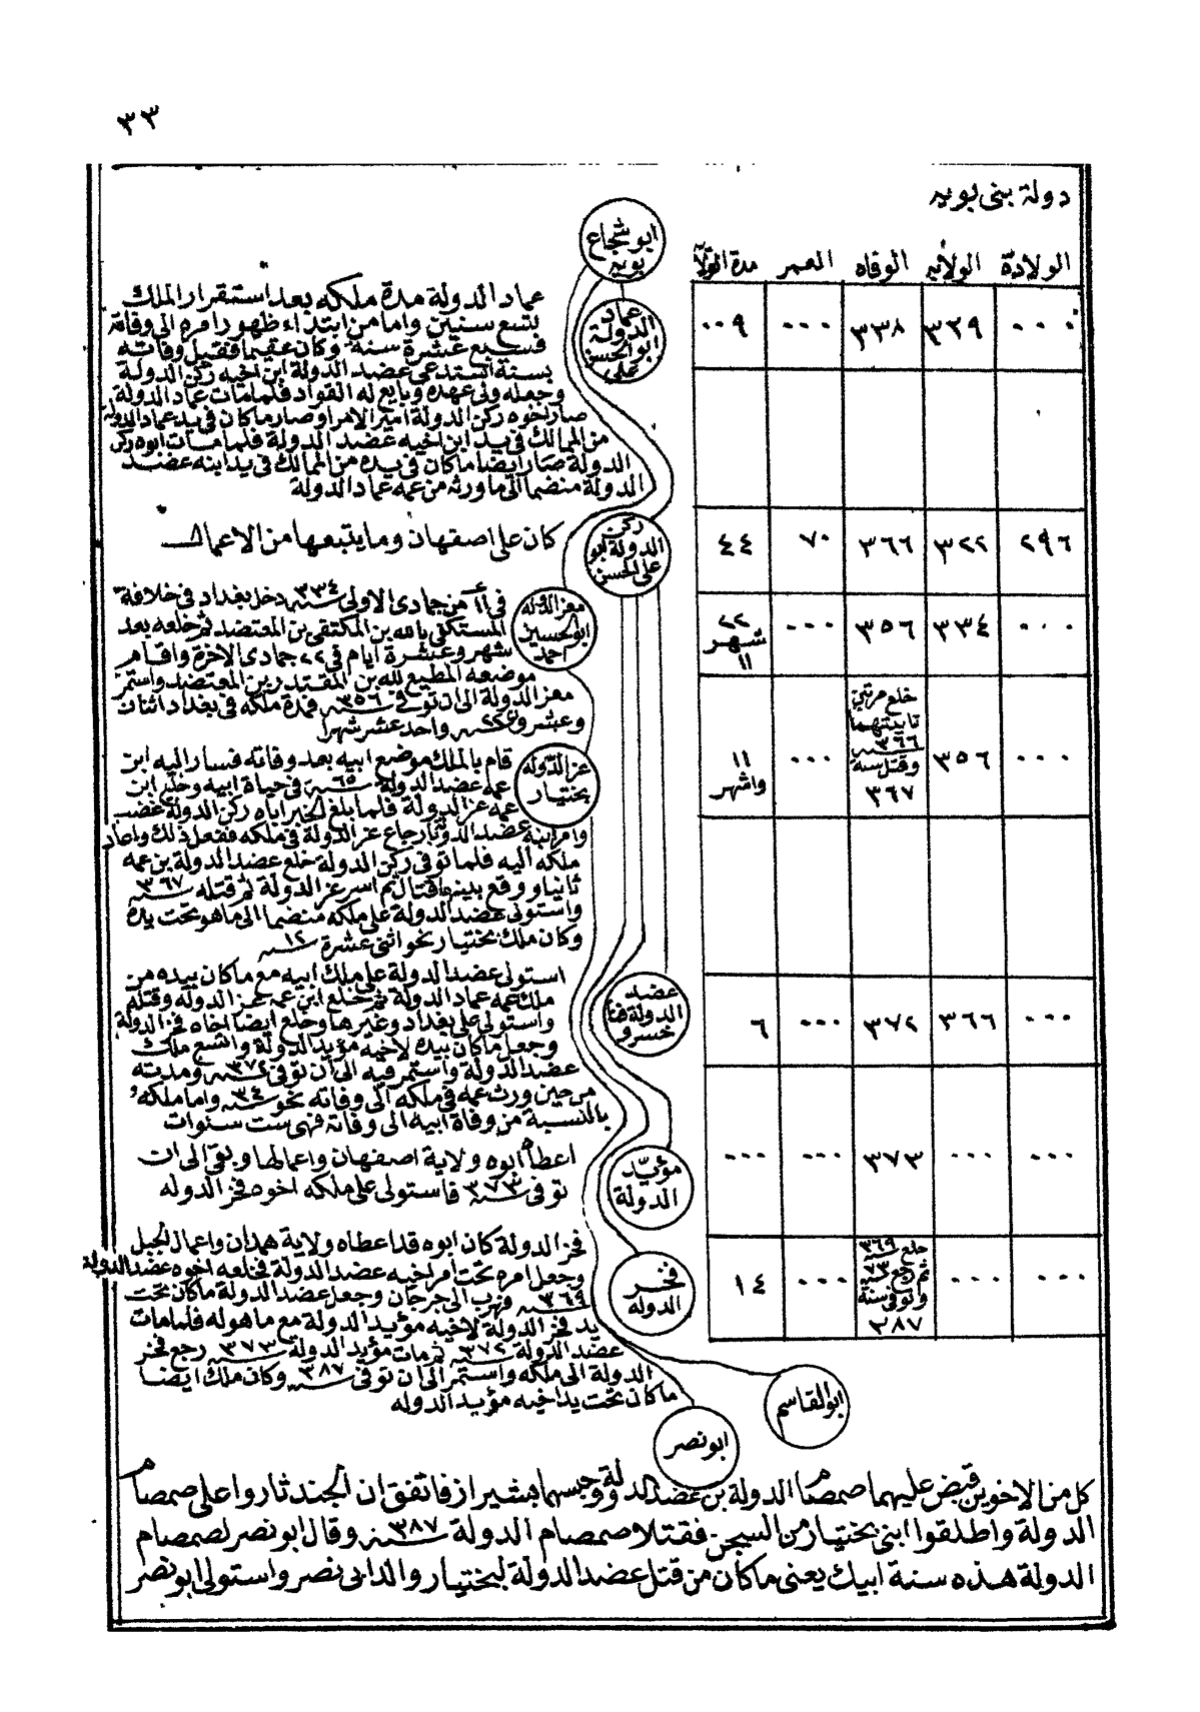 ٣٣
دولة بنى بويه
الولادة الولايه الوفاه العمر مدة الولاية
ابو شجاع
بويه
عماد
الدولة
ابو الحسن
على
٠٠٠ ٣٢٩ ٣٣٨ ٠٠٠ ٠٠٩
عماد الدولة مدة ملكه بعد استقرار الملك
بتسع سنين واما من ابتداء ظهور امره الى وفاته
فسبع عشرة سنة وكان عقيما فقبل وفاته
بسنة استدعى عضد الدولة ابن اخيه ركن الدولة
وجعله ولى عهده وبايع له القواد فلما مات عماد الدولة
صار اخوه ركن الدولة امير الامرا وصار ما كان فى يد عماد الدولة
من الممالك فى يد ابن اخيه عضد الدولة فلما مات ابوه ركن
الدولة صار ايضا ما كان فى يده من الممالك فى يد ابنه عضد
الدولة منضما الى ما ورثه من عمه عماد الدولة
ركن
الدولة ابو
على الحسن
٢٩٦ ٣٢٢ ٣٦٦ ٧٠ ٤٤
كان على اصفهان وما يتبعها من الاعمال
معز الدوله
ابو الحسين
احمد
٠٠٠ ٣٣٤ ٣٥٦ ٠٠٠ ٢٢
شهر
١١
فى ١١ من جمادى الاولى سنة ٣٣٤ دخل بغداد فى خلافة
المستكفى بالله بن المكتفى بن المعتضد ثم خلعه بعد
شهر وعشرة ايام فى ٢٢ جمادى الاخرة واقام
موضعه المطيع لله بن المقتدر بن المعتضد واستمر
معز الدولة الى ان توفى سنة ٣٥٦ فمدة ملكه فى بغداد اثنان
وعشرون سنة واحد عشر شهرا
عز الدوله
بختيار
٠٠٠ ٣٥٦ خلع مرتين
ثانيتهما
سنة ٣٦٦
وقتل سنة
٣٦٧ ٠٠٠ ١١
واشهر
قام بالملك موضع ابيه بعد وفاته فسار اليه ابن
عمه عضد الدولة سنة ٦٥ فى حياة ابيه وخلع ابن
عمه عز الدولة فلما بلغ الخبر اباه ركن الدولة غضب
وامر ابنه عضد الدولة بارجاع عز الدولة فى ملكه ففعل ذلك واعاد
ملكه اليه فلما توفى ركن الدولة خلع عضد الدولة بن عمه
ثانيا ووقع بينهما قتال ثم اسر عز الدولة ثم قتله سنة ٣٦٧
واستولى عضد الدولة على ملكه منضما الى ما هو تحت يده
وكان ملك بختيار نحو اثنى عشرة سنة ١٢
عضد
الدولة فنا
خسرو
٠٠٠ ٣٦٦ ٣٧٢ ٠٠٠ ٦
استولى عضد الدولة على ملك ابيه مع ما كان بيده من
ملك عمه عماد الدولة ثم خلع ابن عمه عز الدولة وقتله
واستولى على بغداد وغيرها وخلع ايضا اخاه فخر الدولة
وجعل ما كان بيده لاخيه مؤيد الدولة واتسع ملك
عضد الدولة واستمر فيه الى ان توفى سنة ٣٧٢ ومدته
من حين ورث عمه فى ملكه الى وفاته نحو سنة ٣٤ واما ملكه
بالنسبة من وفاة ابيه الى وفاته فهى ست سنوات
مؤيد
الدولة
٠٠٠ ٠٠٠ ٣٧٣ ٠٠٠ ٠٠٠
اعطاه ابوه ولاية اصفهان واعمالها وبقى الى ان
توفى سنة ٣٧٣ فاستولى على ملكه اخوه فخر الدوله
فخر
الدوله
٠٠٠ ٠٠٠ خلع سنة ٣٦٩
ثم رجع ٧٣
وتوفى سنة
٣٨٧ ٠٠٠ ١٤
فخر الدولة كان ابوه قد اعطاه ولاية همدان واعمال الجبل
وجعل امره تحت امر اخيه عضد الدولة فخلعه اخوه عضد الدولة
سنة ٣٦٩ فهرب الى جرجان وجعل عضد الدولة ما كان تحت
يد فخر الدولة لاخيه مؤيد الدولة مع ما هو له فلما مات
عضد الدولة سنة ٣٧٢ ثم مات مؤيد الدولة سنة ٣٧٣ رجع فخر
الدولة الى ملكه واستمر الى ان توفى سنة ٣٨٧ وكان ملك ايضا
ما كان تحت يد اخيه مؤيد الدوله
ابو القاسم
ابو نصر
كل من الاخوين قبض عليهما صمصام الدولة بن عضد الدولة وحبسهما بشيراز فاتفق ان الجند ثاروا على صمصام
الدولة واطلقوا ابنى بختيار من السجن فقتلا صمصام الدولة سنة ٣٨٧ وقال ابو نصر لصمصام
الدولة هذه سنة ابيك يعنى ما كان من قتل عضد الدولة لبختيار والد ابى نصر واستولى ابو نصر